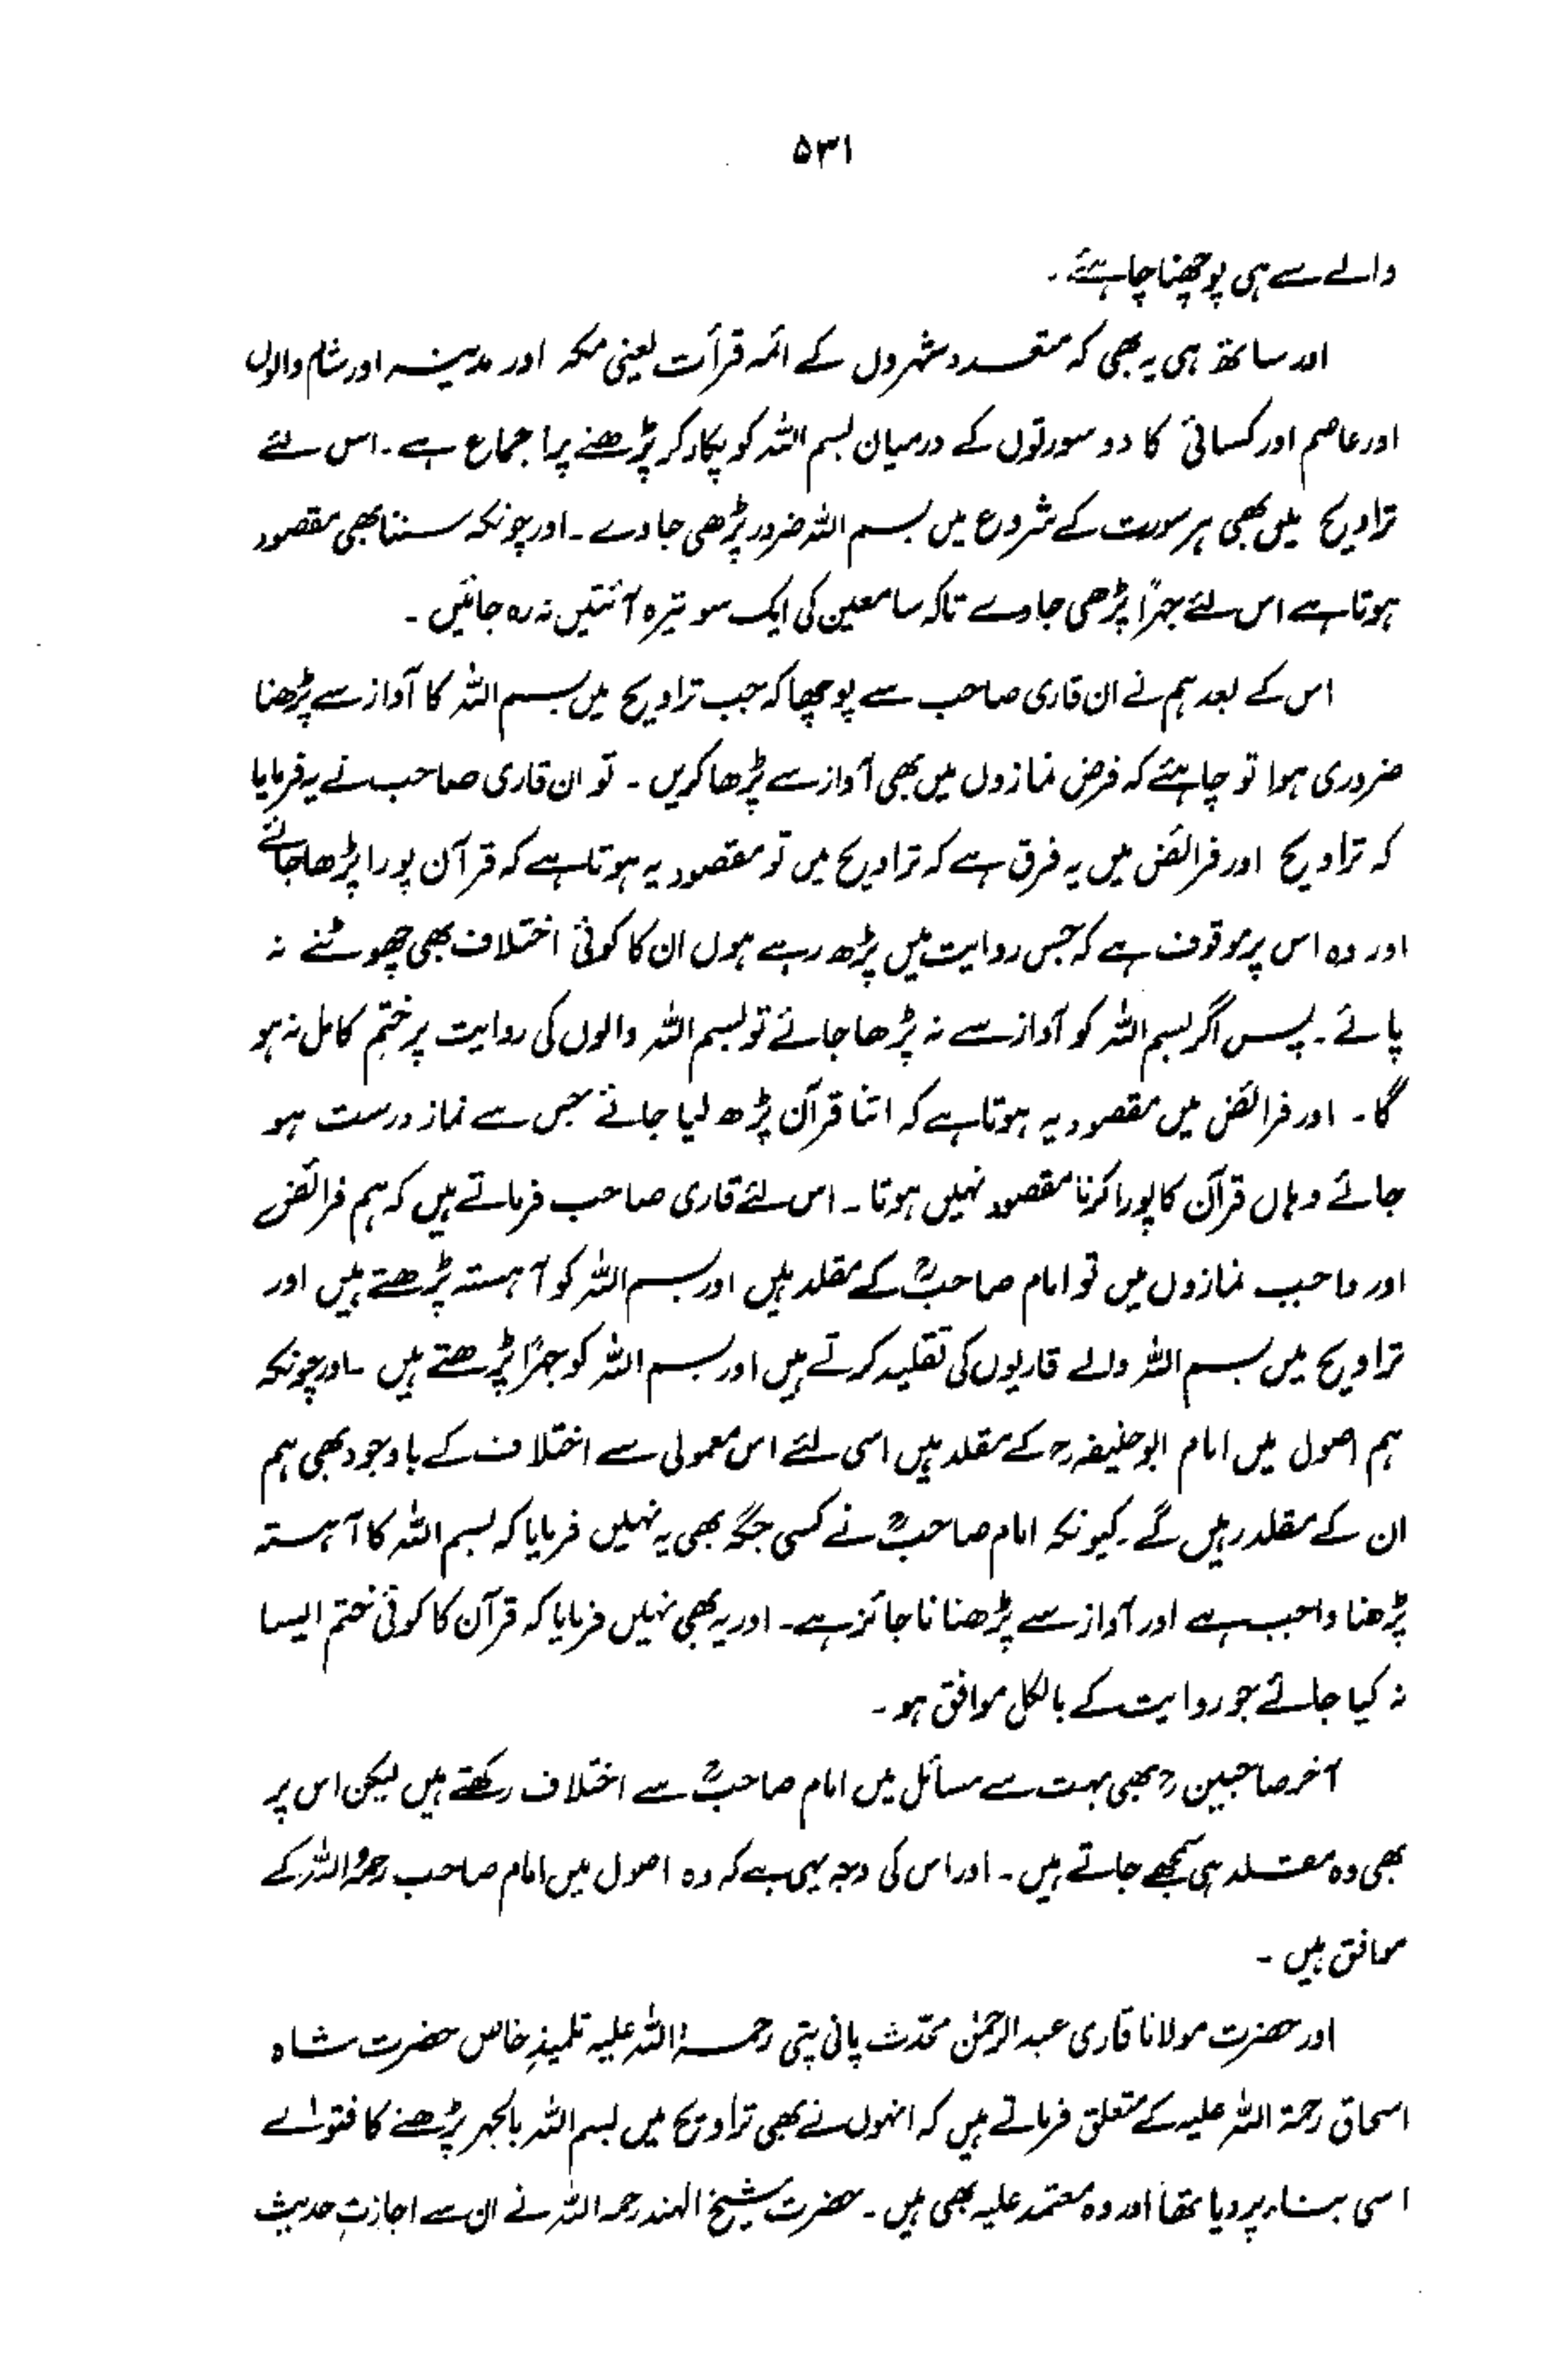 ۵۳۱
والے سے ہی پوچھنا چاہئے۔
اور ساتھ ہی یہ بھی کہ متعدد شہروں کے ائمہ قرأت یعنی مکہ اور مدینہ اور شام والوں
اور عاصم اور کسائی کا دو سورتوں کے درمیان بسم اللہ کو پکار کر پڑھنے پر اجماع ہے۔ اس لئے
تراویح میں بھی ہر سورت کے شروع میں بسم اللہ ضرور پڑھی جاوے۔ اور چونکہ سننا بھی مقصود
ہوتا ہے اس لئے جہراً پڑھی جاوے تاکہ سامعین کی ایک سو تیرہ آئتیں نہ رہ جائیں۔
اس کے بعد ہم نے ان قاری صاحب سے پوچھا کہ جب تراویح میں بسم اللہ کا آواز سے پڑھنا
ضروری ہوا تو چاہئے کہ فرض نمازوں میں بھی آواز سے پڑھا کریں۔ تو ان قاری صاحب نے یہ فرمایا
کہ تراویح اور فرائض میں یہ فرق ہے کہ تراویح میں تو مقصود یہ ہوتا ہے کہ قرآن پورا پڑھا جائے
اور وہ اس پر موقوف ہے کہ جس روایت میں پڑھ رہے ہوں ان کا کوئی اختلاف بھی چھوٹنے نہ
پائے۔ پس اگر بسم اللہ کو آواز سے نہ پڑھا جائے تو بسم اللہ والوں کی روایت پر ختم کامل نہ ہو
گا۔ اور فرائض میں مقصود یہ ہوتا ہے کہ اتنا قرآن پڑھ لیا جائے جس سے نماز درست ہو
جائے وہاں قرآن کا پورا کرنا مقصود نہیں ہوتا۔ اس لئے قاری صاحب فرماتے ہیں کہ ہم فرائض
اور واجب نمازوں میں تو امام صاحبؒ کے مقلد ہیں اور بسم اللہ کو آہستہ پڑھتے ہیں اور
تراویح میں بسم اللہ والے قاریوں کی تقلید کرتے ہیں اور بسم اللہ کو جہراً پڑھتے ہیں۔ اور چونکہ
ہم اصول میں امام ابوحنیفہؒ کے مقلد ہیں اسی لئے اس معمولی سے اختلاف کے باوجود بھی ہم
ان کے مقلد رہیں گے۔ کیونکہ امام صاحبؒ نے کسی جگہ بھی یہ نہیں فرمایا کہ بسم اللہ کا آہستہ
پڑھنا واجب ہے اور آواز سے پڑھنا ناجائز ہے۔ اور یہ بھی نہیں فرمایا کہ قرآن کا کوئی ختم ایسا
نہ کیا جائے جو روایت کے بالکل موافق ہو۔
آخر صاحبینؒ بھی بہت سے مسائل میں امام صاحبؒ سے اختلاف رکھتے ہیں لیکن اس پر
بھی وہ مقلد ہی سمجھے جاتے ہیں۔ اور اس کی وجہ یہی ہے کہ وہ اصول میں امام صاحب رحمہ اللہ کے
موافق ہیں۔
اور حضرت مولانا قاری عبدالرحمٰن محدّث پانی پتی رحمۃ اللہ علیہ تلمیذِ خاص حضرت شاہ
اسحاق رحمۃ اللہ علیہ کے متعلق فرماتے ہیں کہ انہوں نے بھی تراویح میں بسم اللہ بالجہر پڑھنے کا فتوےٰ
اسی بناء پر دیا تھا اور وہ معتمد علیہ بھی ہیں۔ حضرت شیخ الہند رحمہ اللہ نے ان سے اجازتِ حدیث